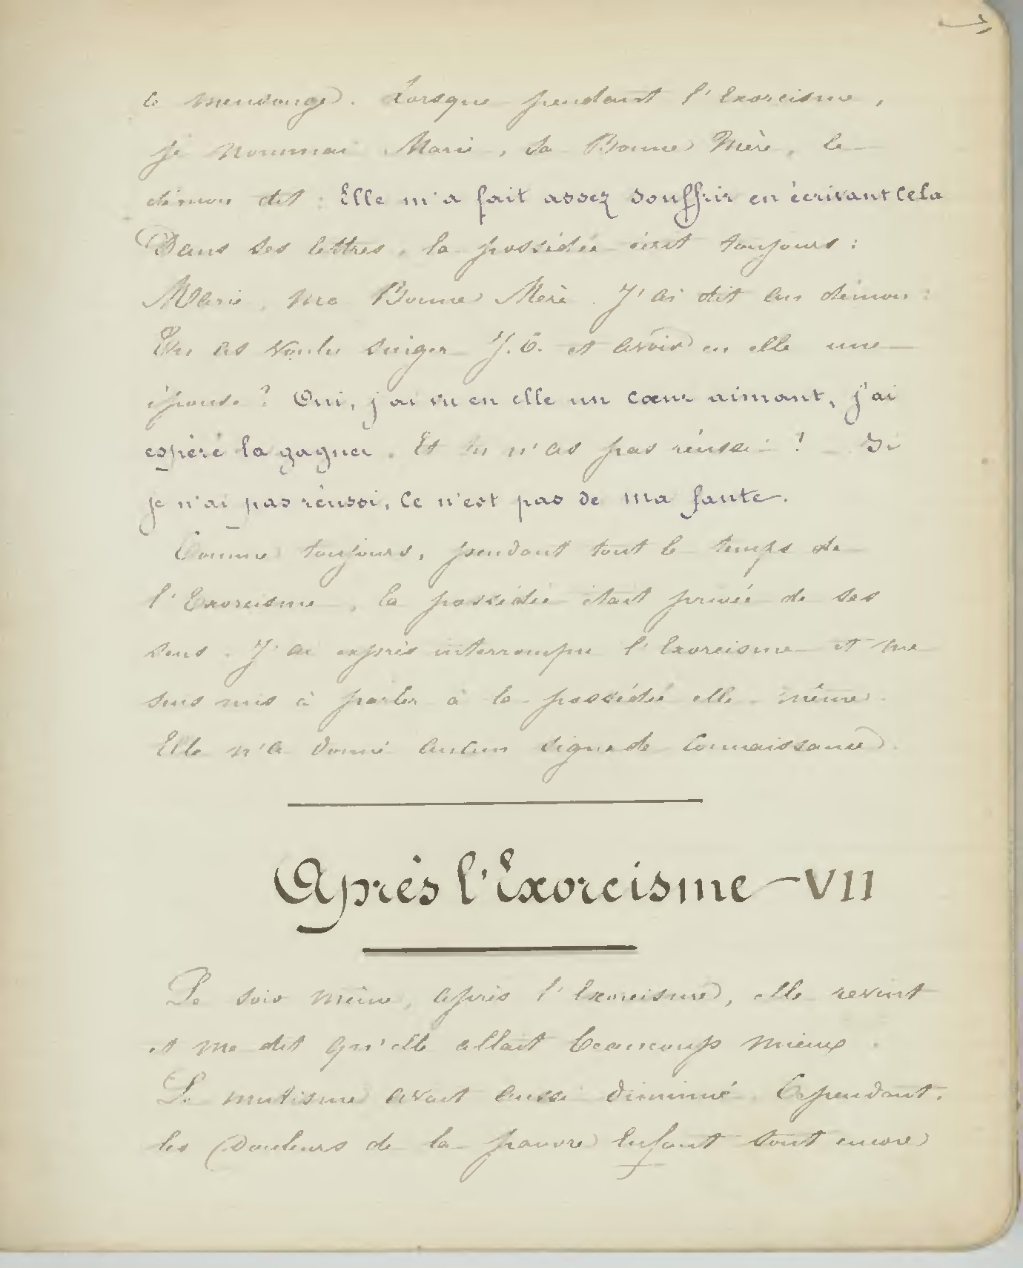 le mensonge. Lorsque pendant l'Exorcisme,
je nommai Marie, sa Bonne Mère, le
démon dit : Elle m'a fait assez souffrir en écrivant cela
Dans ses lettres, la possédée écrit toujours :
Marie, ma Bonne Mère. J'ai dit au démon :
Tu as voulu singer J.C. et avoir en elle une
épouse ? Oui, j'ai vu en elle un cœur aimant, j'ai
espéré la gagner. Et tu n'as pas réussi ! – Si
je n'ai pas réussi, ce n'est pas de ma faute.
Comme toujours, pendant tout le temps de
l'Exorcisme, la possédée était privée de ses
sens. J'ai exprès interrompu l'Exorcisme et me
suis mis à parler à la possédée elle-même.
Elle n'a donné aucun signe de connaissance.
Après l'Exorcisme VII
Le soir même, après l'Exorcisme, elle revint
et me dit qu'elle allait beaucoup mieux.
Le mutisme avait aussi diminué. Cependant,
les douleurs de la pauvre enfant sont encore